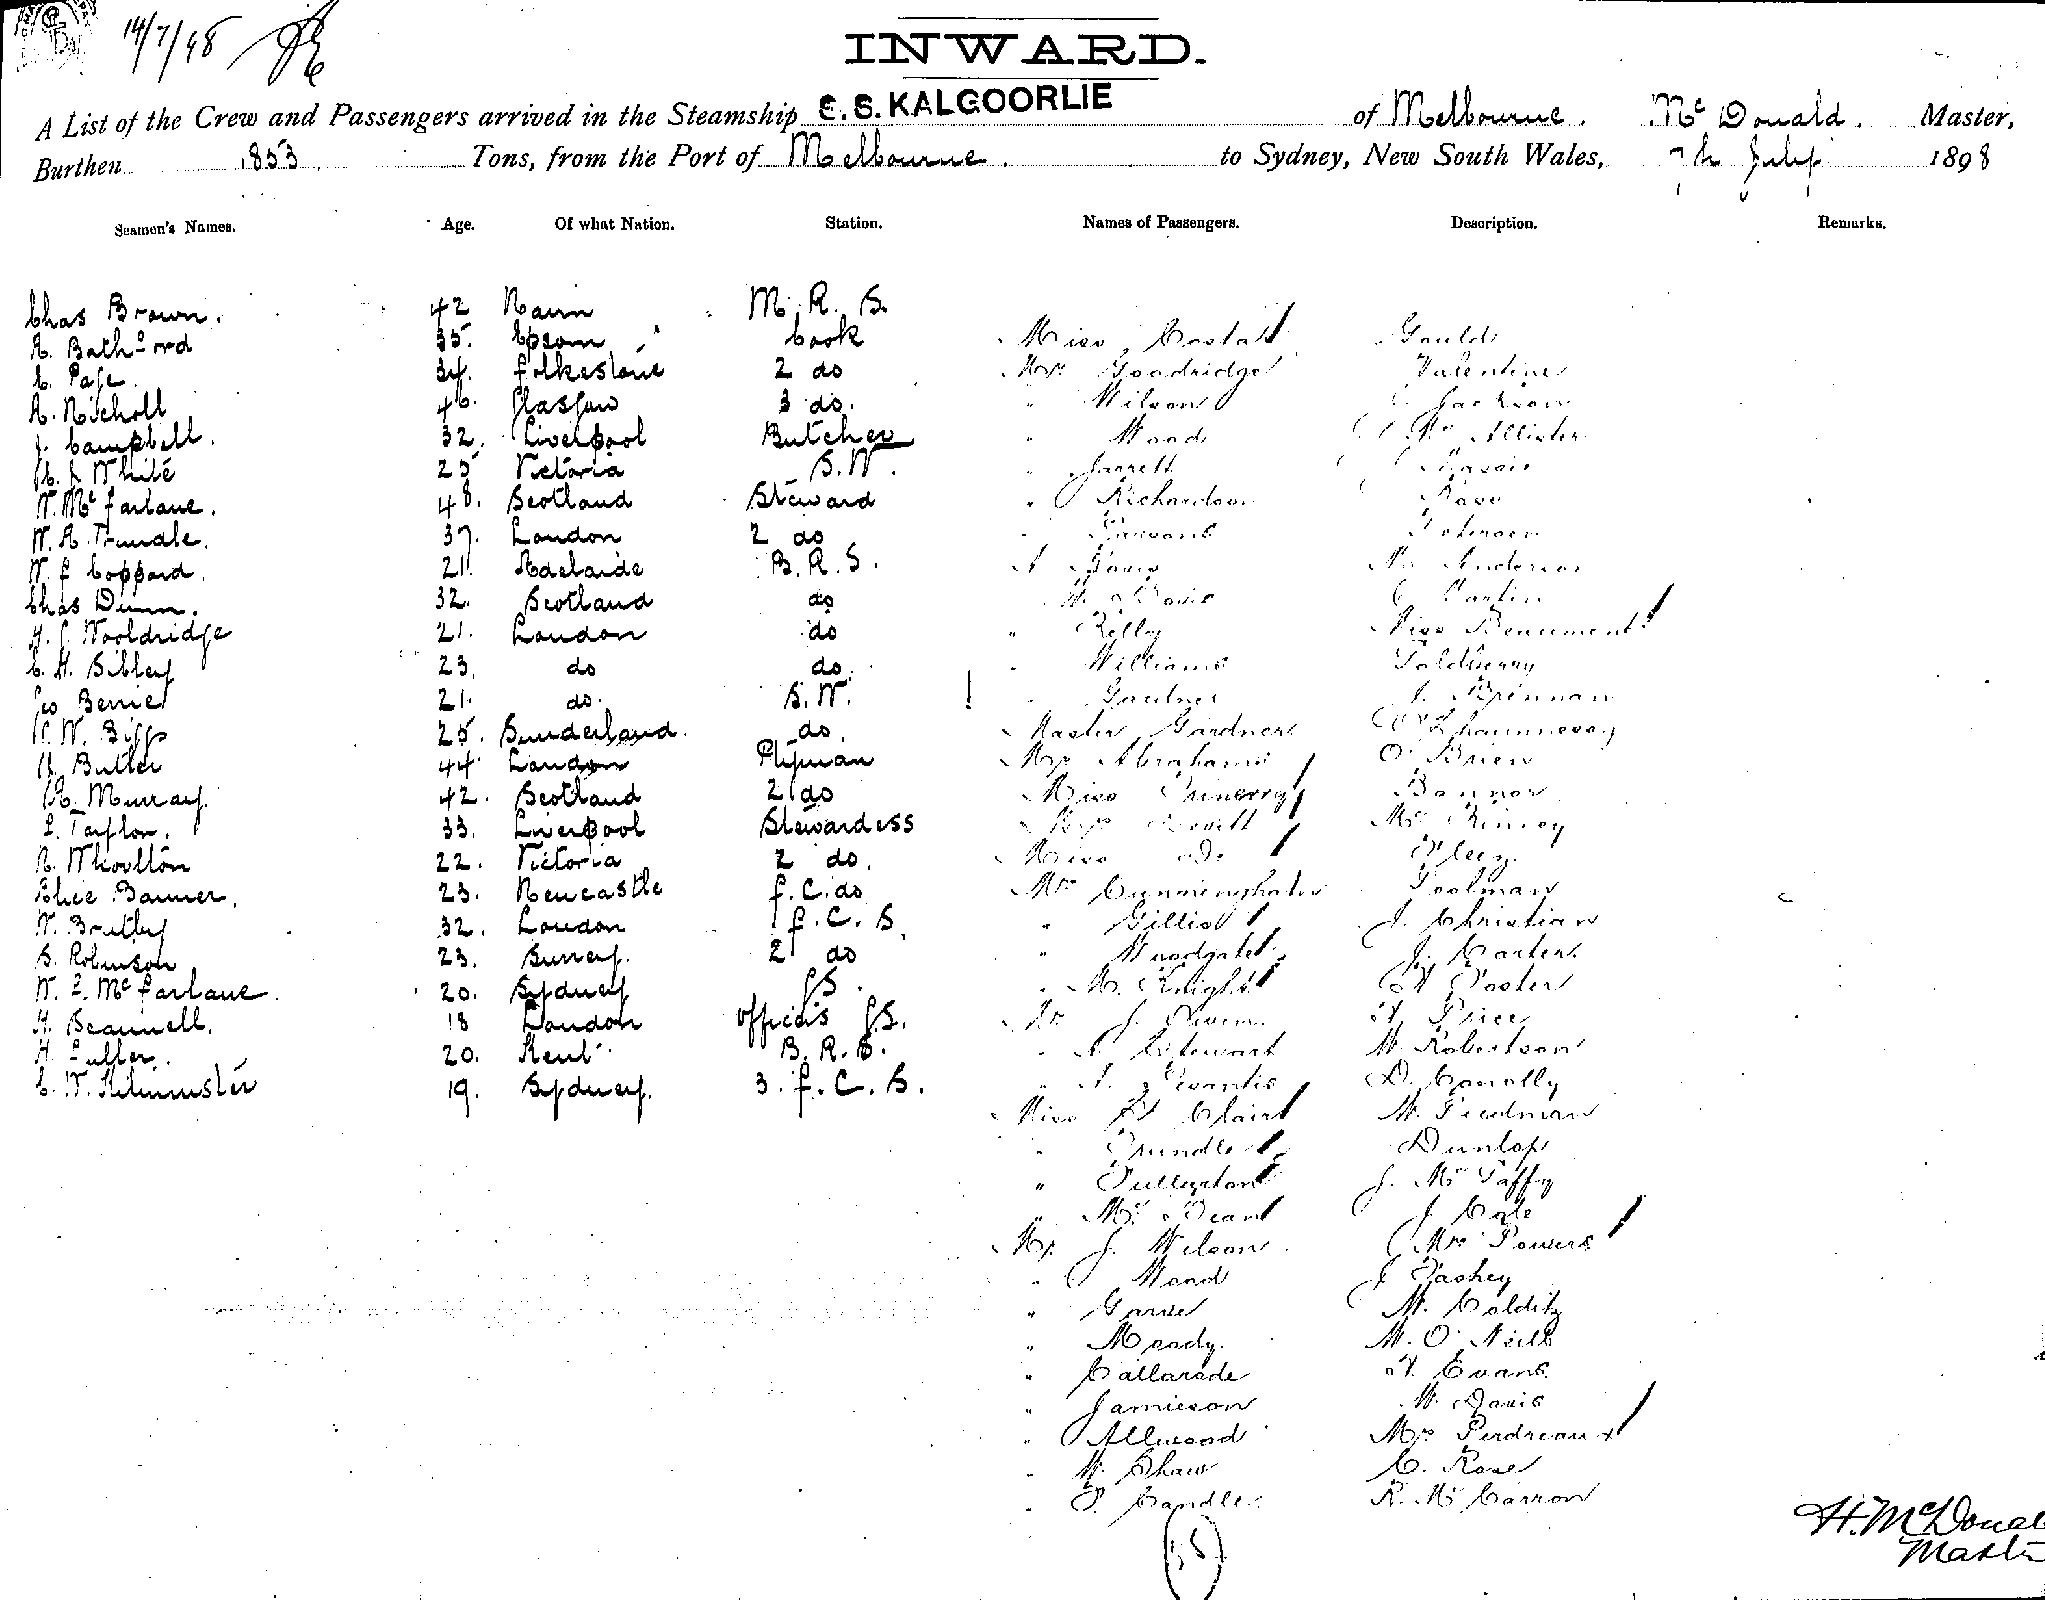 14/7/98
INWARD.
A List of the Crew and Passengers arrived in the Steamship S. S. KALGOORLIE of Melbourne. Mc Donald. Master,
Burthen 1853 Tons, from the Port of Melbourne. to Sydney, New South Wales, 7th July 1898
Seamen's Names. Age. Of what Nation. Station. Names of Passengers. Description. Remarks.
Chas Brown. 42 Nairn M. R. S.
35. Epsom Cook
C. Page. 34. Folkestone 2 do
A. Nicholl 46. Glasgow 3 do.
J. Campbell. 32. Liverpool Butcher
White 25 Victoria S. W.
W. Mc Farlane. 48. Scotland Steward
W. A. Trundle. 37. London 2 do
W. F. Coppard. 21. Adelaide B. R. S.
Chas Dunn. 32. Scotland do
H. J. Wooldridge 21. London do
C. H. Sibley 23. do do.
Geo Berrie 21. do. S. W.
W. Biggs 25. Sunderland. do.
Butler 44 London Ptyman
A. Murray. 42. Scotland 2 do
L. Taylor. 33. Liverpool Stewardess
A. Whoolton 22. Victoria 2 do.
Alice Banner. 23. Newcastle F. C. do
W. Brutley 32. London F. C. S.
S. Robinson 23. Surrey. 2 do
W. L. Mc Farlane. 20. Sydney GS.
H. Scannell. 18 London officers GS.
H. Luller. 20. Kent B. R. S.
C. W. Kilminster 19. Sydney. 3. F. C. S.
Miss Costa Gould
Mr Goodridge Valentine
" Wilson Jackson
" Wood Mc Allister
" Jarrett
" Richardson Rase
" Parsons Johnson
A Davis Mr Anderson
W. Davis C Martin
" Kelly Miss Beaumont
" Williams Goldberry
" Gardner J. Brennan
Master Gardner O'Shaunnessy
Mrs Abrahams O'Brien
Miss Chinerry Bannor
Mrs Mc Kinney
Miss do
Mr Cunningham Toolman
" Gillis J. Christian
" Woodgate J. Carter
" M. Knight H Foster
Mr J. H. Price
" A Stewart W. Robertson
" D. Conolly
Miss St Clair W. Friedman
" Trundle Dunlop
" Fullerton J. Mc Taffy
" Mc Bean J Cole
Mr J. Wilson. Mrs Powers
" Wood J Pashey
" Garrie W. Colditz
" Moody. W. O'Neill
" Callarade H. Evans
" Jamieson W. Davis
" Allwood Mrs Perdreau
" W. Shaw C. Rose
" P. Candle R. Mc Carron
H. McDonal
Maste